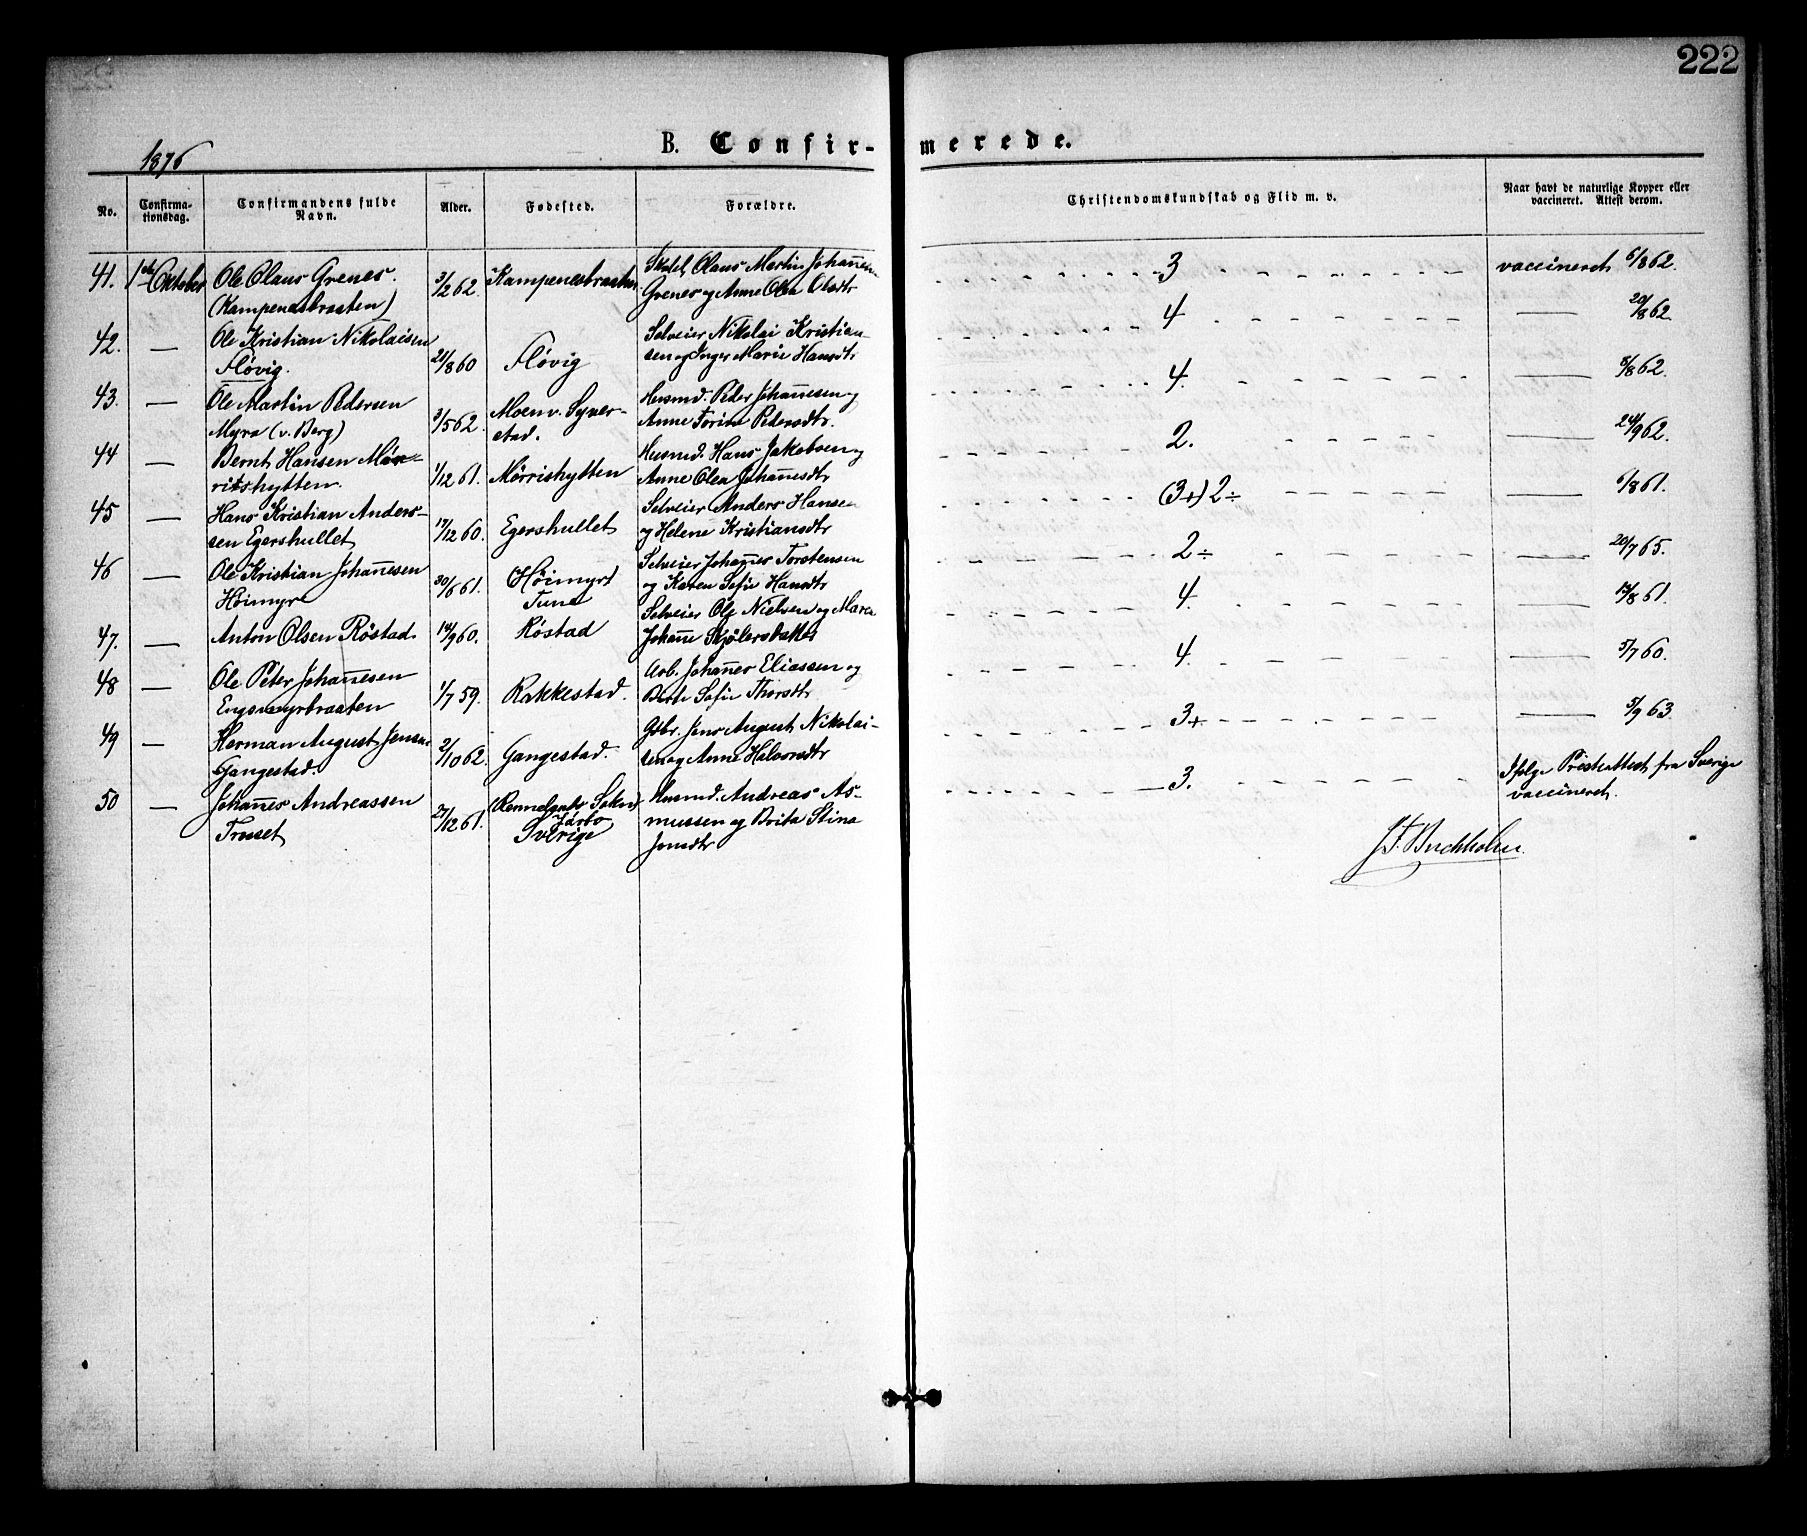 222
1876
B. Confir-merede.
No.
Confirma-
tionsdag.
Confirmandens fulde
Navn.
Alder.
Fødested.
Forældre.
Christendomskundskab og Flid m. v.
Naar havt de naturlige Kopper eller
vaccineret. Attest derom.
41. 1ste Oktober Ole Olaus Grenes. 3/2 62. Kampenesbraaten Olaus Martin Johannes. 3 vaccineret 6/8 62.
(Kampenesbraaten) Grenes og Anne Olea Olsdtr
42. — Ole Kristian Nikolaisen Selveier Nikolai Kristian- 4 — 20/8 62.
Fløvig. 21/8 60 Fløvig sen og Inger Marie Hansdtr
43. — Ole Martin Pedersen Husmd. Peder Johannesen og 4. — 8/8 62.
Myra (v. Berg) 3/5 62. Moen v. Syver- Anne Torine Pedersdtr.
stad.
44 — Bernt Hansen Mør- Husmd. Hans Jakobsen og 2. — 24/9 62.
rishytten. 1/12 61. Mørrishytten Anne Olea Johannesdtr
45 — Hans Kristian Anders- Selveier Anders Hansen (3+) 2÷ — 6/8 61.
sen Egershullet 17/12 60. Egershullet og Helene Kristiansdtr
46 — Ole Kristian Johannesen Selveier Johannes Torstensen 2÷ — 20/7 65.
Høimyr 30/6 61. Høimyr og Karen Sofie Hansdtr
Tune
47. — Anton Olsen Røstad. 14/9 60. Røstad Selveier Ole Nielsen og Maren 4. — 17/8 61.
Johanne
48 — Ole Peter Johannesen Arb. Johannes Eliassen og 4. — 5/7 60.
Engsmyrbraaten 1/7 59. Rakkestad. Berte Sofie Thorsdtr
49 — Herman August Jensen Gdbr. Jens August Nikolai- 3+ — 5/9 63.
Gangestad. 2/10 62. Gangestad. sen og Anne Halvorsdtr
50 — Johannes Andreassen Sokn Husmd. Andreas As- 3. Ifølge Presteattest fra Sverige
Trosset 27/12 61. Järbo mussen og Brita Stina vaccineret.
Sverige Jonsdtr
Buchholm.